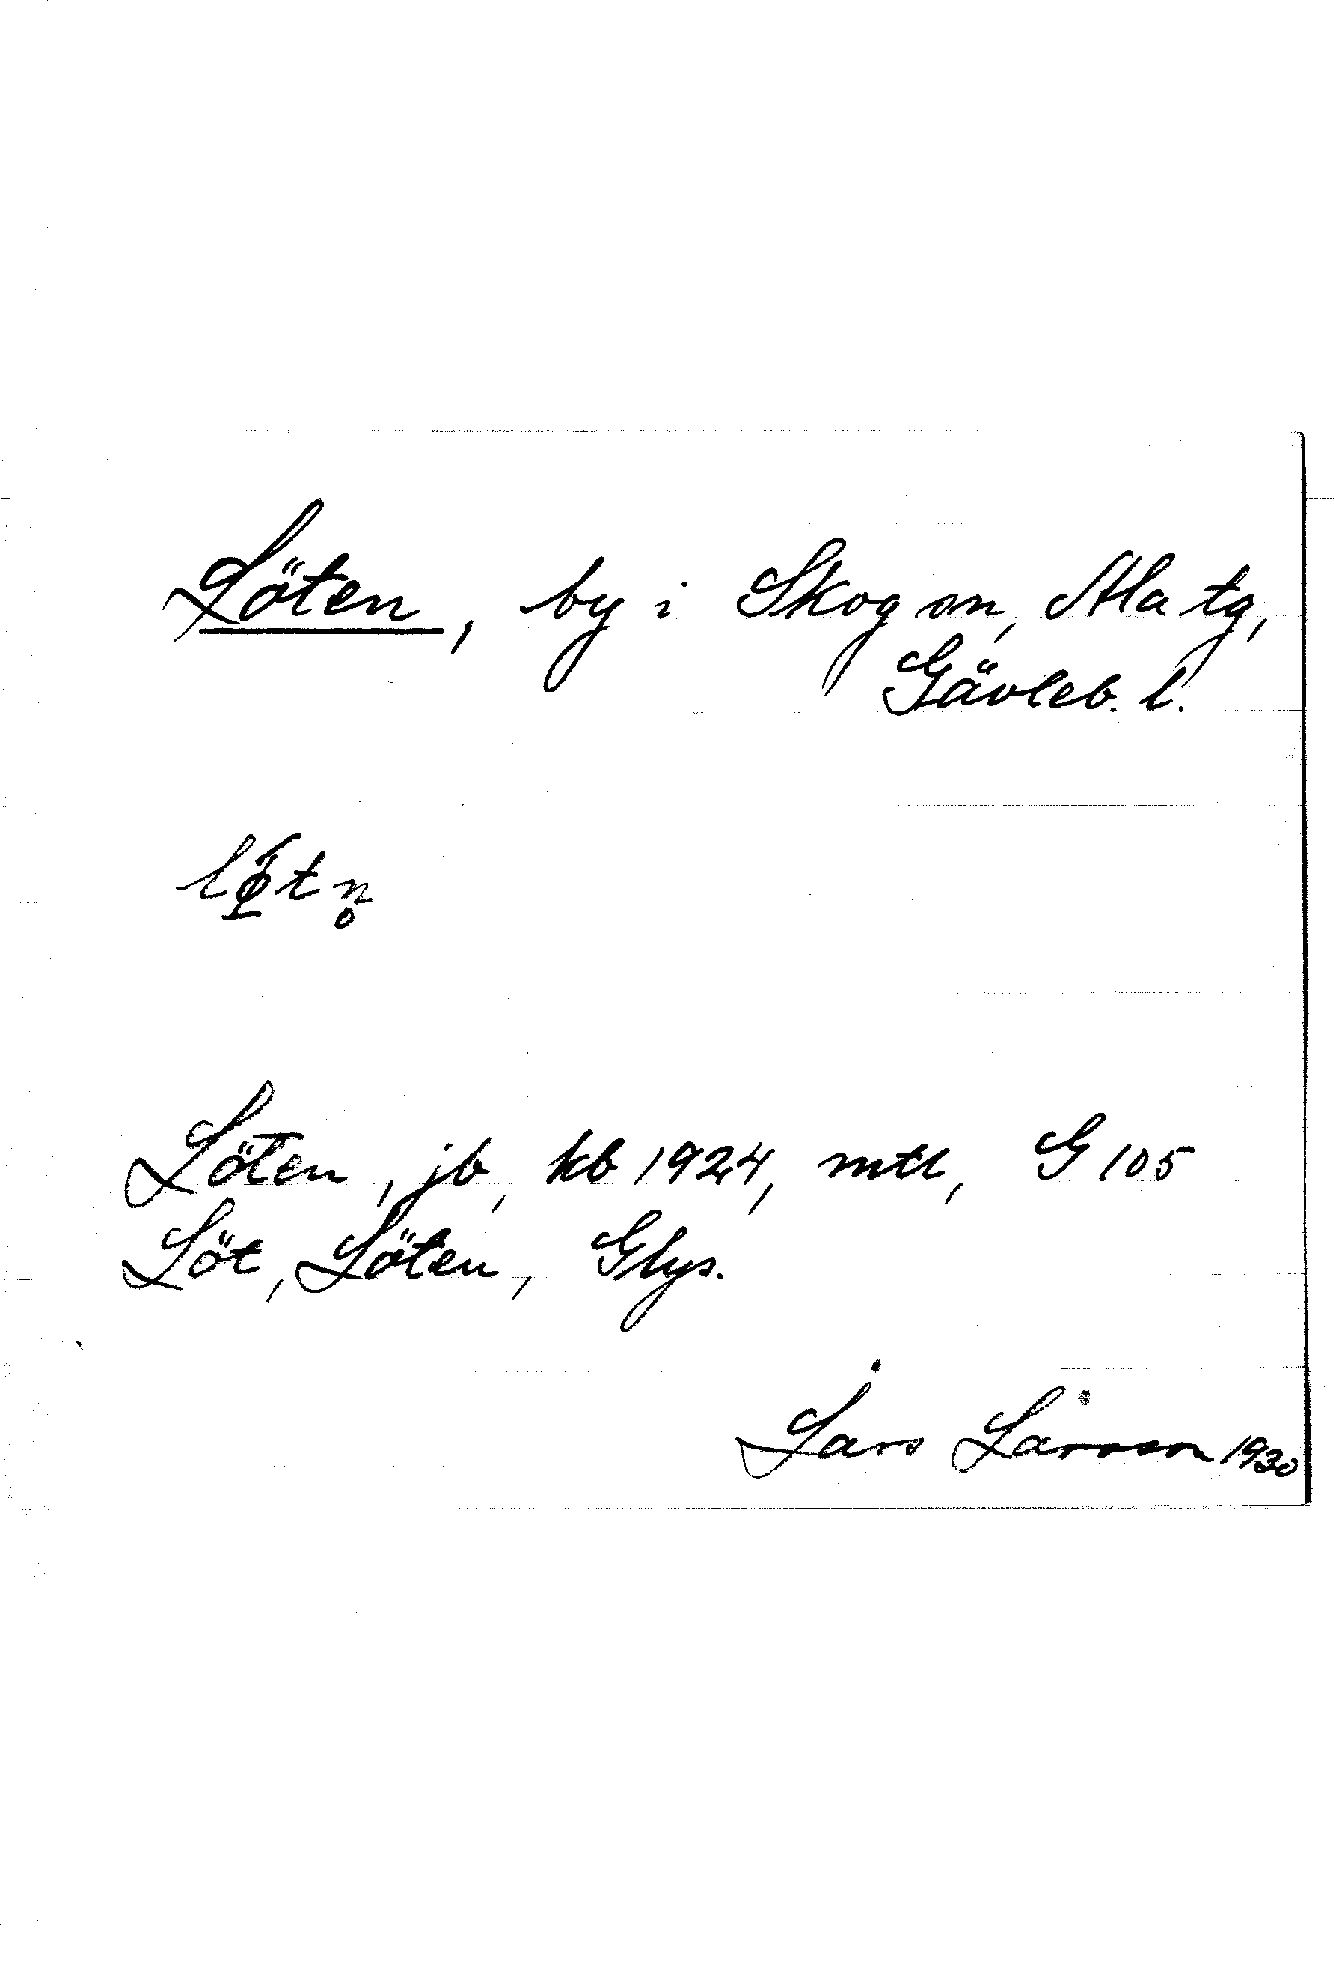 Löten, by i Skog sn, Ala tg,
Gävleb. l.
Löten, jb, kb 1924, mtl, G 105
Löt, Löten, Glys.
Lars Larsson 1930